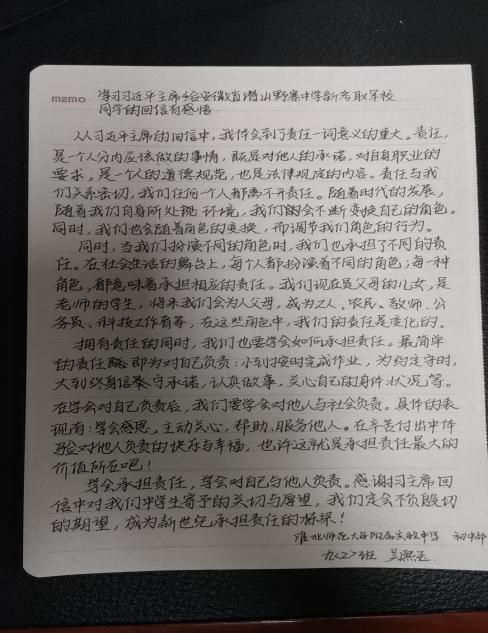 memo 学习习近平主席给安徽省潜山野寨中学新考取军校
同学的回信有感悟
从习近平主席的回信中,我体会到了责任一词意义的重大。责任,
是一个人分内应该做的事情,既是对他人的承诺,对自身职业的
要求,是一个人的道德规范,也是法律规定的内容。责任与我
们关系密切,我们任何一个人都离不开责任。随着时代的发展,
随着我们自身所处 环境,我们 会不断变换自己的角色。
同时,我们也会随着角色的变换,而调节我们角色的行为。
同时,当我们扮演不同的角色时,我们也承担了不同的责
任。在社会生活的舞台上,每个人都扮演着不同的角色;每一种
角色,都意味着承担相应的责任。我们现在是父母的儿女,是
老师的学生,将来我们会为人父母,成为工人、农民、教师、公
务员、科技工作者等,在这些角色中,我们的责任是变化的。
拥有责任的同时,我们也要学会如何承担责任。最简单
的责任 即为对自己负责:小到按时完成作业,为约定守时,
大到终身信 守承诺,认真做事,关心自己的身体状况等。
在学会对自己负责后,我们要学会对他人与社会负责。具体的表
现有:学会感恩,主动关心,帮助、服务他人。在辛苦付出中体
验对他人负责的快乐与幸福,也许这就是承担责任最大的
价值所在吧!
学会承担责任,学会对自己与他人负责。感谢习主席回
信中对我们中学生寄予的关切与厚望,我们定会不负殷切
的期望,成为新世纪承担责任的栋梁!
淮北师范大学附属实验中学 初中部
九<2>班 吴